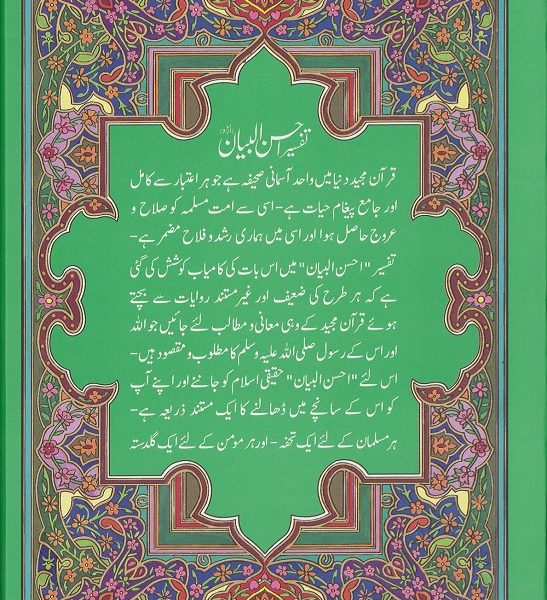 تفسیر احسن البیان اردو
قرآن مجید دنیا میں واحد آسمانی صحیفہ ہے جو ہر اعتبار سے کامل
اور جامع پیغام حیات ہے - اسی سے امت مسلمہ کو صلاح و
عروج حاصل ہوا اور اسی میں ہماری رشد و فلاح مضمر ہے -
تفسیر "احسن البیان" میں اس بات کی کامیاب کوشش کی گئی
ہے کہ ہر طرح کی ضعیف اور غیر مستند روایات سے بچتے
ہوئے قرآن مجید کے وہی معانی و مطالب لئے جائیں جو اللہ
اور اس کے رسول صلی اللہ علیہ وسلم کا مطلوب و مقصود ہیں -
اس لئے "احسن البیان" حقیقی اسلام کو جاننے اور اپنے آپ
کو اس کے سانچے میں ڈھالنے کا ایک مستند ذریعہ ہے -
ہر مسلمان کے لئے ایک تحفہ - اور ہر مومن کے لئے ایک گلدستہ